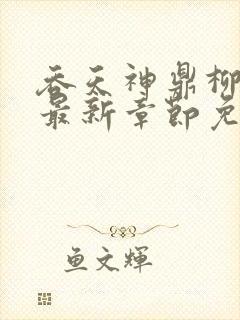 吞天神鼎柳
最新章節免
鱼文輝